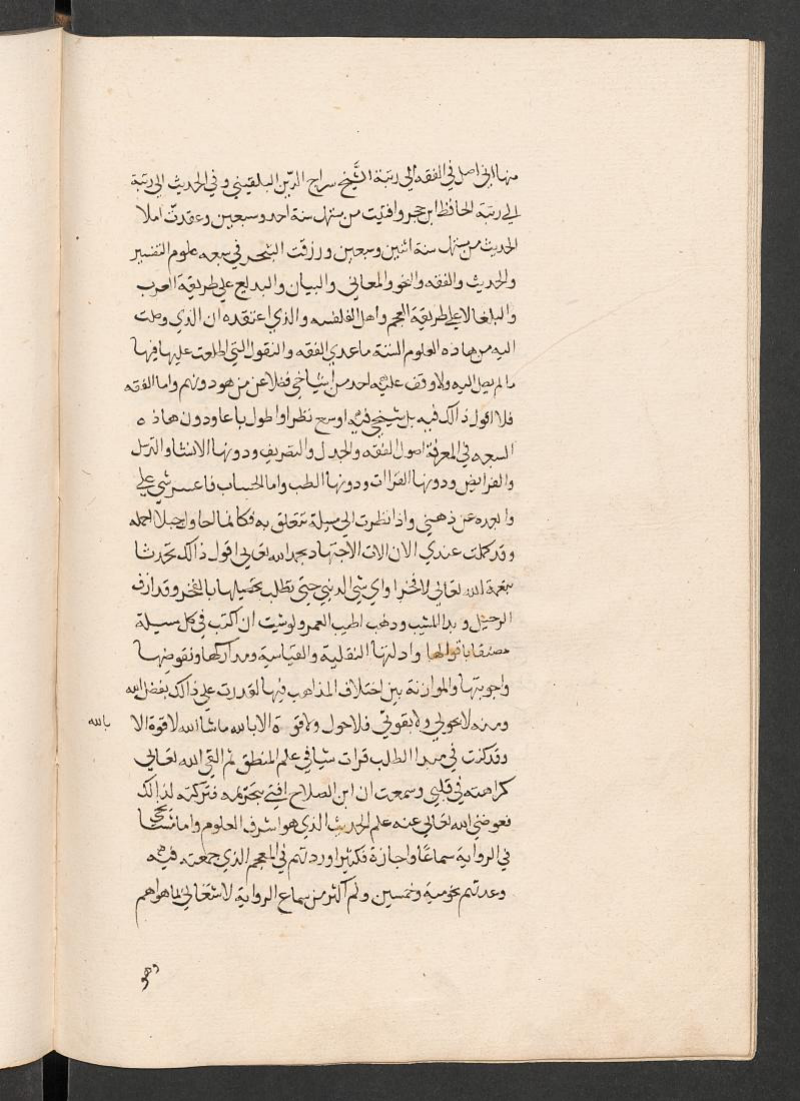 منها انى اصل في الفقه الي رتبة الشَّيخ سراج الدين البلقيني وفي الحديث الي رتبة
الي رتبة الحافظ ابن حجر وافتيت من مستهل سنة احد وسبعين وعقدت املا
الحديث من مستهل سنة اثنين وسبعين ورزقت التبحر في سبعه علوم التفسير
والحديث والفقه والنحو والمعاني والبيان والبديع علي طريقة العرب
والبلغا لا علي طريقة العجم واهل الفلسفه والذي اعتقده ان الذي وصلت
اليه من هاذه العلوم الستة ماعدي الفقه والنقول التي اطلعت عليها فيها
مالم يصل اليه ولا وقف عليه احد من اشياخي فضلا عن من هو دونهم واما الفقه
فلا اقول ذالك فيه بل شيخي فيه اوسع نظرا واطول باعا ودون هاذه
السبعه في المعرفة اصول الفقه والجدل والتصريف ودونها الانشا والترسل
والفرايض ودونها القراات ودونها الطب واما الحساب فاعسر شي علي
وابعده عن ذهني واذا نظرت الي مسيلة تتعلق به فكانما احاول جبلا احمله
وقد كملت عندي الان الات الاجتهاد بحمد الله تعالي اقول ذالك تحدثا
بنعمة الله تعالي لا فخرا واي شي الدنيي حتي يطلب تحصيلها بالفخر وقد ازف
الرحيل وبدا المشيب وذهب اطيب العمر ولو شيت ان اكتب في كل مسيلة
مصنفا باقوالها وادلتها النقلية والقياسية ومداركها ونقوضها
واجوبتها والموازنة بين اختلاف المذاهب فيها لقدرت علي ذالك بفضل الله
ومنه لا بحولي ولا بقوتي فلا حول ولا قوة الا بالله ماشا الله لا قوة الا بالله
وقد كنت في مبدا الطلب قرات شيا في علم المنطق ثم القي الله تعالي
كراهته في قلبي وسمعت ان ابن الصلاح افتي بتحريمه فتركته لذالك
فعوضني الله تعالي عنه علم الحديث الذي هو اشرف العلوم واما مشايخي
في الرواية سماعًا واجازة فكثير اوردتهم في المعجم الذي جمعته فيه
وعدتهم نحو مية وخمسين ولم اكثر من سماع الرواية لاشتغالي بما هو اهم
وهو